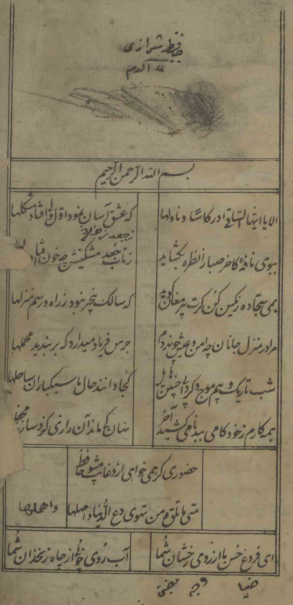 حافظ شرازی
بسم الله الرحمن الرحیم
الا یا ایها الساقی ادر کاسا و ناولها که عشق آسان نمود اول ولی افتاد مشکلها
ببوی نافه کاخر صبا زان طره بکشاید زتاب جعد مشکینش چه خون افتاد در دلها
بمی سجاده رنکین کن کرت پیر مغان کوید که سالک بیخبر نبود ز راه و رسم منزلها
مرا در منزل جانان چه امن و عیش چون هر دم جرس فریاد میدارد که بربندید محملها
شب تاریک و بیم موج و کردابی چنین هایل کجا دانند حال ما سبکباران ساحلها
همه کارم ز خود کامی ببدنامی کشید آخر نهان کی ماند آن رازی کزو سازند محفلها
حضوری کر همی خواهی ازو غایب مشو حافظ
متی ما تلق من تهوی دع الدنیا و اهملها
ای فروغ حسن ماه از روی رخشان شما آب روی خوبی از چاه زنخدان شما
ضیا وجه